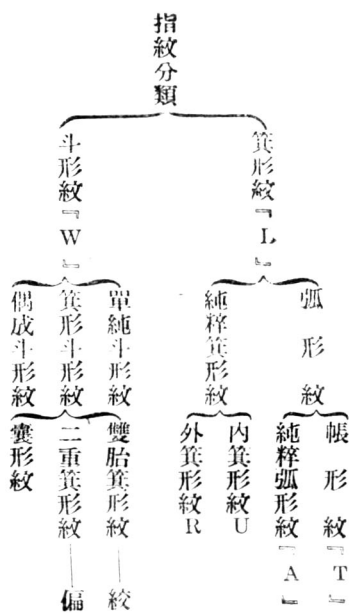 指紋分類
箕形紋『L』
弧形紋
帳形紋『T』
純粹弧形紋『A』
純粹箕形紋
內箕形紋U
外箕形紋R
斗形紋『W』
單純斗形紋
箕形斗形紋
偶成斗形紋
雙胎箕形紋——絞
二重箕形紋——偏
囊形紋